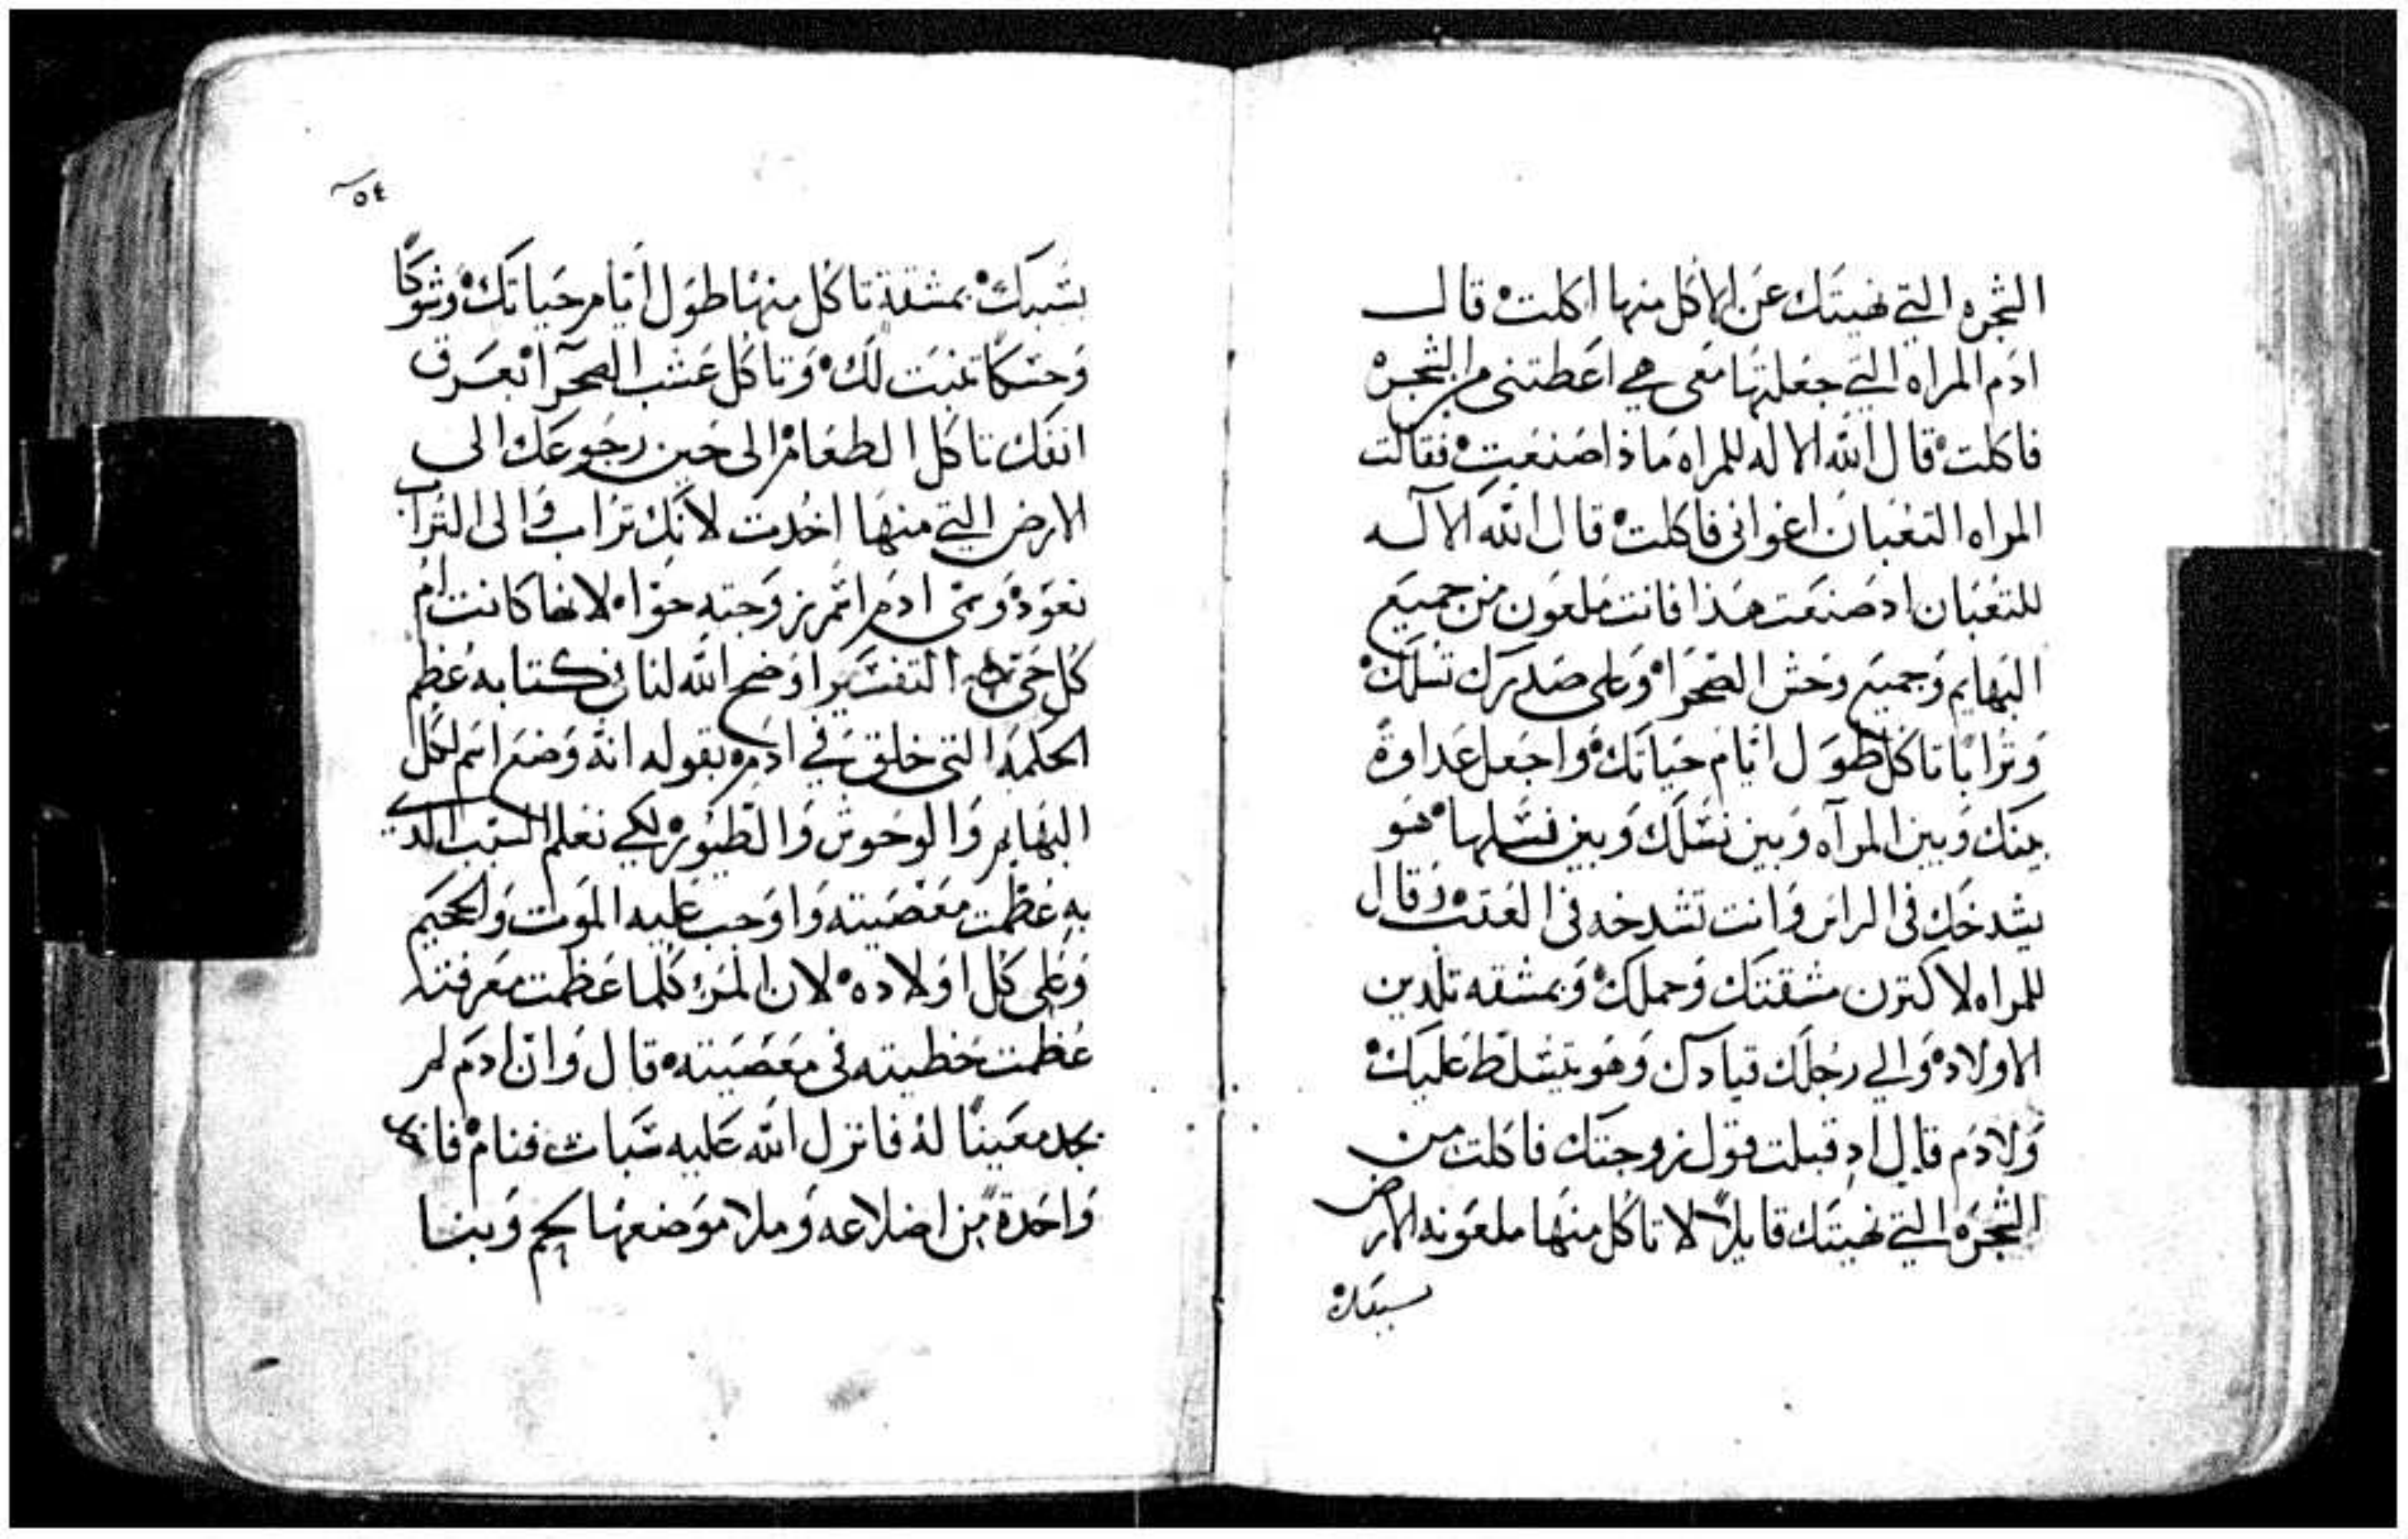 الشجره التي نهيتك عن الاكل منها اكلت قال
ادم المراه التي جعلتها معي هي اعطتني من الشجره
فاكلت قال الله الاله للمراه ماذا صنعت فقالت
المراه التعبان اغواني فاكلت قال الله الاله
للتعبان اد صنعت هذا فانت ملعون من جميع
البهايم وجميع وحش الصحرا وعلى صدرك تسلك
وترابا تاكل طول ايام حياتك واجعل عداوة
بينك وبين المرآه وبين نسلك وبين نسلها هو
يشدخك في الراس وانت تشدخه في العقب وقال
للمراه لاكترن مشقتك وحملك وبمشقه تلدين
الاولاد والي رجلك قيادك وهو يتسلط عليك
ولادم قال اد قبلت قول زوجتك فاكلت من
الشجره التي نهيتك قايلا لا تاكل منها ملعونه الارض
بسببك
٥٤
بسببك بمشقة تاكل منها طول ايام حياتك وشوكا
وحسكا تنبت لك وتاكل عشب الصحرآ بعرق
انفك تاكل الطعام الى حين رجوعك الى
الارض التي منها اخدت لانك تراب والى التراب
تعود وسمى ادم اسم زوجته حوا لانها كانت ام
كل حي التفسير اوضح الله لنا في كتابه عظم
الحكمه التي خلق في ادم بقوله انه وضع اسم لكل
البهايم والوحوش والطيور لكي نعلم السبب الدي
به عظمت معصيته واوجب عليه الموت والجحيم
وعلى كل اولاده لان المرء كلما عظمت معرفته
عظمت خطيته في معصيته قال وان ادم لم
يجد معينا له فانزل الله عليه سبات فنام
واحدة من اضلاعه وملا موضعها لحم وبنا